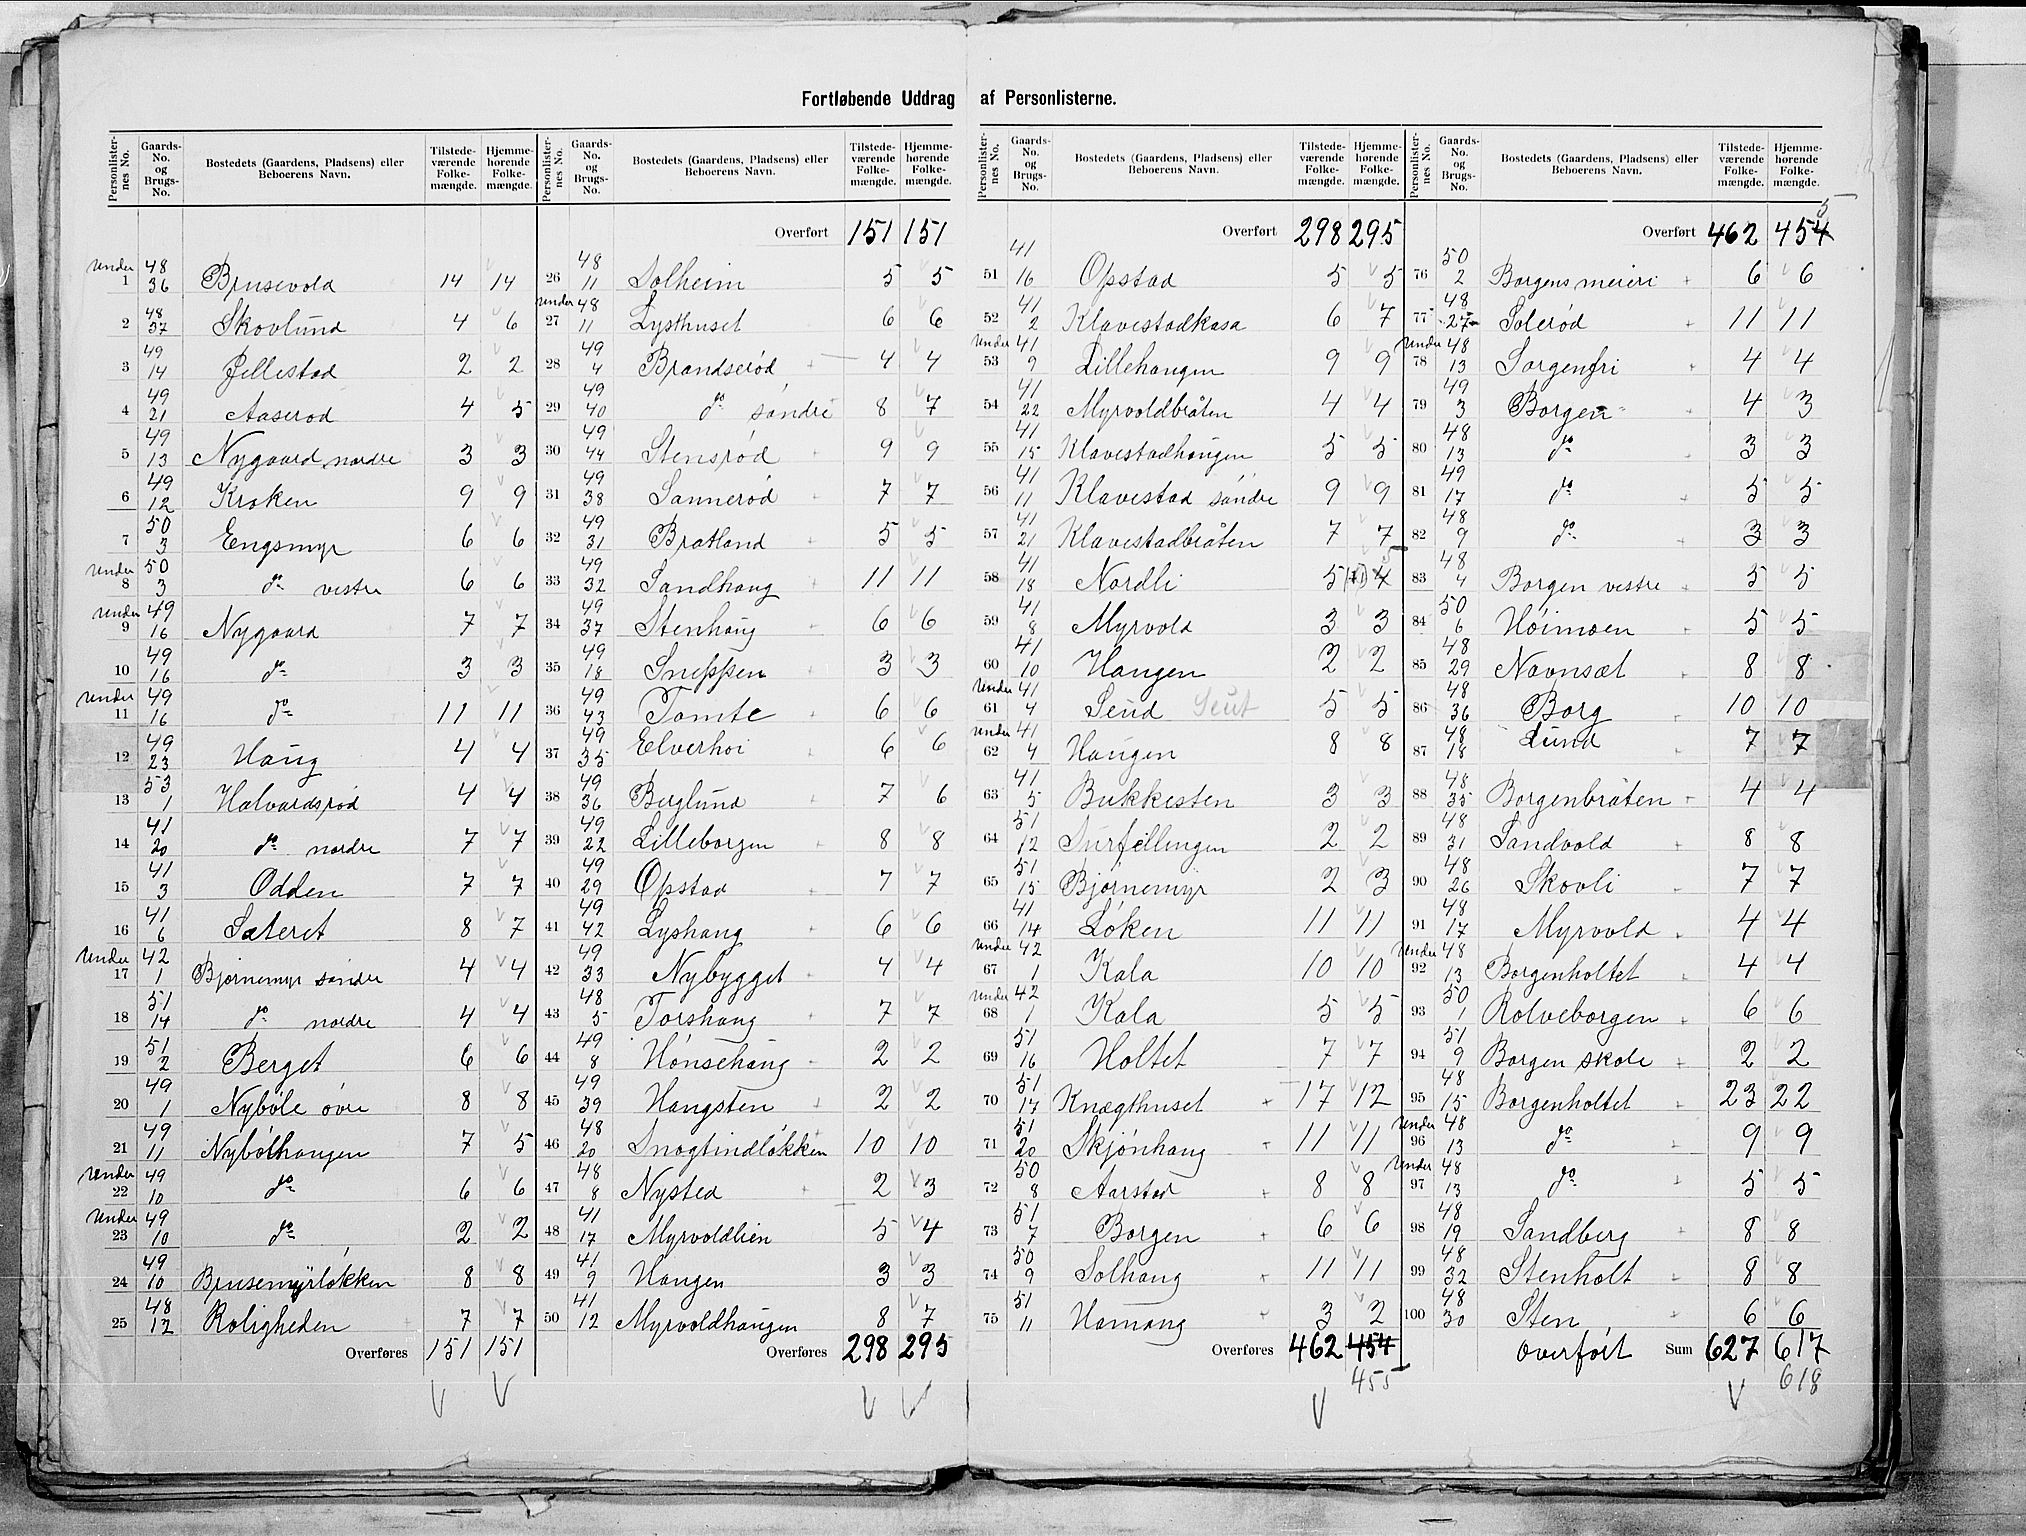 Fortløbende Uddrag af Personlisterne.
Personlister-nes No. | Gaards-No. og Brugs-No. | Bostedets (Gaardens, Pladsens) eller Beboerens Navn. | Tilstede-værende Folke-mængde. | Hjemme-hørende Folke-mængde.
under 1 48/36 Brusevold 14 14
2 48/37 Skovlund 4 6
3 49/14 Jellestad 2 2
4 49/21 Aaserød 4 5
5 49/13 Nygaard nordre 3 3
6 49/12 Kroken 9 9
7 50/3 Engsmyr 6 6
under 8 50/3 do vestre 6 6
under 9 49/16 Nygaard 7 7
10 49/16 do 3 3
under 11 49/16 do 11 11
12 49/23 Haug 4 4
13 53/1 Halvardsrød 4 4
14 41/20 do nordre 7 7
15 41/3 Odden 7 7
16 41/6 Sæteret 8 7
under 17 42/1 Bjørnemyr søndre 4 4
18 51/14 do nordre 4 4
19 51/2 Berget 6 6
20 49/1 Nybøle øvre 8 8
21 49/11 Nybølhaugen 7 5
under 22 49/10 do 6 6
under 23 49/10 do 2 2
24 49/10 Brusemyrløkken 8 8
25 48/12 Roligheden 7 7
Overføres 151 151
Personlister-nes No. | Gaards-No. og Brugs-No. | Bostedets (Gaardens, Pladsens) eller Beboerens Navn. | Tilstede-værende Folke-mængde. | Hjemme-hørende Folke-mængde.
Overført 151 151
26 48/11 Solheim 5 5
under 27 48/11 Lysthuset 6 6
28 49/4 Brandserød 4 4
29 49/40 do søndre 8 7
30 49/44 Stensrød 9 9
31 49/38 Sannerød 7 7
32 49/31 Bratland 5 5
33 49/32 Sandhaug 11 11
34 49/37 Stenhaug 6 6
35 49/18 Sneppen 3 3
36 49/43 Tomte 6 6
37 49/35 Elverhøi 6 6
38 49/36 Berglund 7 6
39 49/22 Lilleborgen 8 8
40 49/29 Opstad 7 7
41 49/42 Lyshaug 6 6
42 49/33 Nybygget 4 4
43 48/5 Torshaug 7 7
44 49/8 Hønsehaug 2 2
45 49/39 Haugsten 2 2
46 48/20 Snogtindløkken 10 10
47 48/8 Nysted 2 3
48 41/17 Myrvoldlien 5 4
49 41/9 Haugen 3 3
50 41/12 Myrvoldhaugen 8 7
Overføres 298 295
Personlister-nes No. | Gaards-No. og Brugs-No. | Bostedets (Gaardens, Pladsens) eller Beboerens Navn. | Tilstede-værende Folke-mængde. | Hjemme-hørende Folke-mængde.
Overført 298 295
51 41/16 Opstad 5 5
52 41/2 Klavestadkasa 6 7
under 53 41/9 Lillehaugen 9 9
54 41/22 Myrvoldbråten 4 4
55 41/15 Klavestadhaugen 5 5
56 41/11 Klavestad søndre 9 9
57 41/21 Klavestadbråten 7 7
58 41/18 Nordli 5 4 5
59 41/8 Myrvold 3 3
60 41/10 Haugen 2 2
under 61 41/4 Seud Seut 5 5
under 62 41/4 Haugen 8 8
63 41/5 Bukkesten 3 3
64 51/12 Surfellingen 2 2
65 51/15 Bjørnemyr 2 3
66 41/14 Løken 11 11
under 67 42/1 Kala 10 10
under 68 42/1 Kala 5 5
69 51/16 Holtet 7 7
70 51/17 Knægthuset 17 12
71 51/20 Skjønhaug 11 11
72 50/8 Aarstad 8 8
73 51/7 Borgen 6 6
74 50/9 Solhaug 11 11
75 51/11 Hamang 3 2
Overføres 462 454
455
Personlister-nes No. | Gaards-No. og Brugs-No. | Bostedets (Gaardens, Pladsens) eller Beboerens Navn. | Tilstede-værende Folke-mængde. | Hjemme-hørende Folke-mængde.
Overført 462 454 5
76 50/2 Borgens meieri 6 6
77 48/27 Solerød 11 11
under 78 48/13 Sorgenfri 4 4
79 49/3 Borgen 4 3
80 48/13 do 3 3
81 49/17 do 5 5
82 48/9 do 3 3
83 48/4 Borgen vestre 5 5
84 50/6 Høimoen 5 5
85 48/29 Navnsæt 8 8
86 48/36 Borg 10 10
87 48/18 Lund 7 7
88 48/35 Borgenbråten 4 4
89 48/31 Sandvold 8 8
90 48/26 Skovli 7 7
91 48/17 Myrvold 4 4
under 92 48/13 Borgenholtet 4 4
93 50/1 Rolveborgen 6 6
94 51/9 Borgen skole 2 2
95 48/15 Borgenholtet 23 22
under 96 48/13 do 9 9
under 97 48/13 do 5 5
98 48/19 Sandberg 8 8
99 48/32 Stenholt 8 8
100 48/30 Sten 6 6
overført Sum 627 617
618